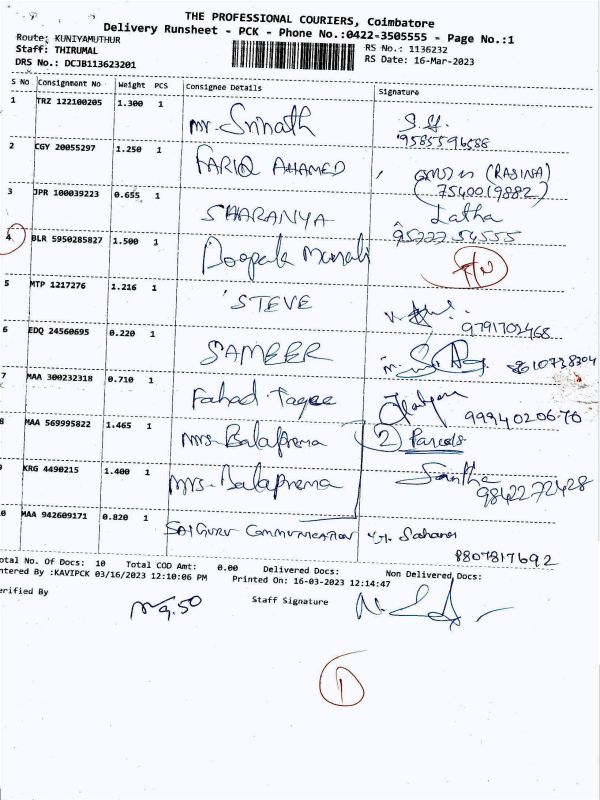 THE PROFESSIONAL COURIERS, Coimbatore
Delivery Runsheet - PCK - Phone No.:0422-3505555 - Page No.:1
Route: KUNIYAMUTHUR
Staff: THIRUMAL
DRS No.: DCJB113623201
RS No.: 1136232
RS Date: 16-Mar-2023
S No Consignment No Weight PCS Consignee Details Signature
1 TRZ 122100205 1.300 1 Mr. Srinath
9585596588
2 CGY 20055297 1.250 1 FARIQ AHAMED (RASINA)
7540019882
3 JPR 100039223 0.655 1 SHARANYA Latha
95222 54555
4 BLR 5950285827 1.500 1 Deepak
5 MTP 1217276 1.216 1 STEVE
9791702468
6 EDQ 24560695 0.220 1 SAMEER
8610738304
7 MAA 300232318 0.710 1 Fahad Taqee
9994020670
8 MAA 569995822 1.465 1 Mrs. Balaprema 2 Parcels
9 KRG 4490215 1.400 1 Mrs. Balaprema Santha
9842272428
0 MAA 942609171 0.820 1 SATGURU COMMUNICATION
9807817692
otal No. Of Docs: 10 Total COD Amt: 0.00 Delivered Docs: Non Delivered Docs:
ntered By :KAVIPCK 03/16/2023 12:10:06 PM Printed On: 16-03-2023 12:14:47
erified By 9.50 Staff Signature
1